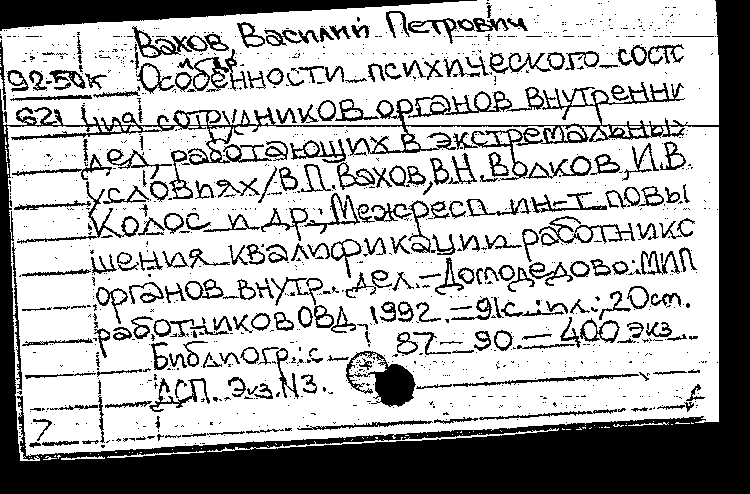 Вахов, Василий Петрович
и др.
92-50к Особенности психического состо
621 яния сотрудников органов внутренни
дел, работающих в экстремальных
условиях/В.П. Вахов, В.Н. Волков, И.В.
Колос и др.; Межресп. ин-т повы
шения квалификации работнико
органов внутр. дел.-Домодедово:МИП
работников ОВД, 1992.-91с.:ил.;20см.
Библиогр.:с 87-90.-400экз
ДСП. Экз.N3.
7